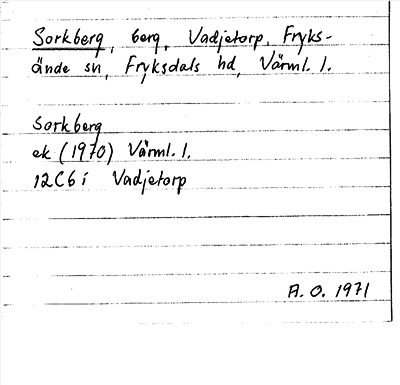 Sorkberg, berg, Vadjetorp, Fryks-
ände sn, Fryksdals hd, Värml. l.
Sorkberg
ek (1970) Värml. l.
12C6i Vadjetorp
A. O. 1971